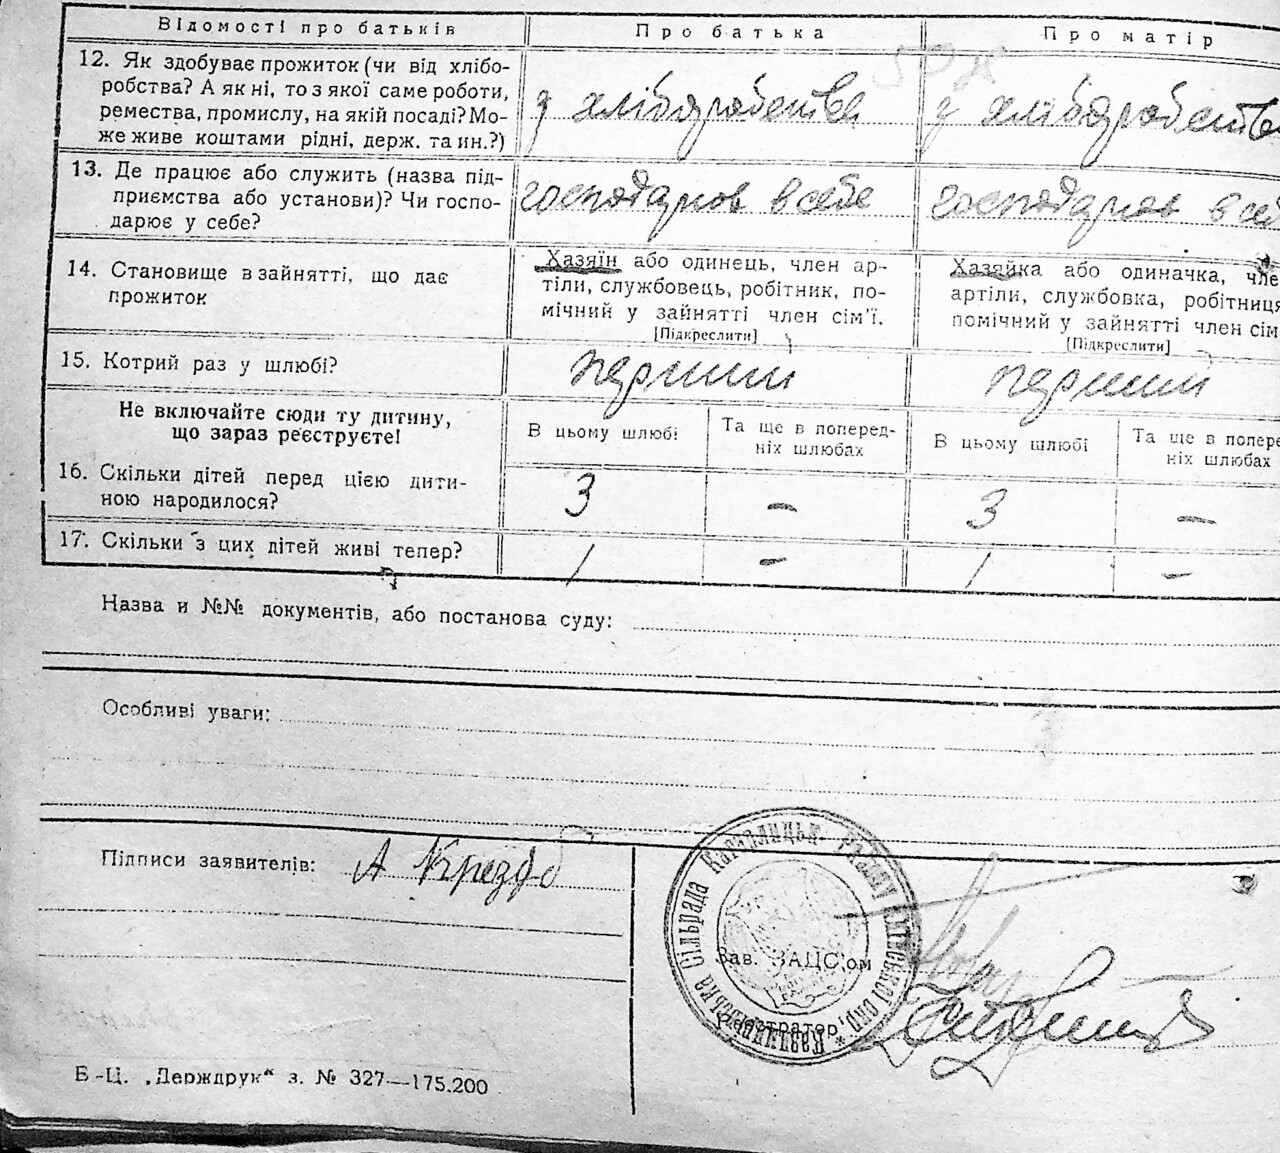 Відомості про батьків Про батька Про матір
12. Як здобуває прожиток (чи від хлібо-
робства? А як ні, то з якої саме роботи,
ремества, промислу, на якій посаді? Мо-
же живе коштами рідні, держ. та ин.?)
з хліборобства з хліборобства
13. Де працює або служить (назва під-
приємства або установи)? Чи госпо-
дарює у себе?
господарює в себе господарює в себе
14. Становище в зайнятті, що дає
прожиток
Хазяїн або одинець, член ар-
тіли, службовець, робітник, по-
мічний у зайнятті член сім'ї.
[Підкреслити]
Хазяйка або одиначка, чле
артіли, службовка, робітниця
помічний у зайнятті член сім
[Підкреслити]
15. Котрий раз у шлюбі? перший перший
Не включайте сюди ту дитину,
що зараз реєструєте!
В цьому шлюбі Та ще в поперед-
ніх шлюбах
В цьому шлюбі Та ще в попере
ніх шлюбах
16. Скільки дітей перед цією дити-
ною народилося?
3 – 3 –
17. Скільки з цих дітей живі тепер? 1 – 1 –
Назва и №№ документів, або постанова суду:
Особливі уваги:
Підписи заявителів: А
Сільрада
Зав. ЗАЦС'ом
Реєстратор,
Б-Ц. „Держдрук" з. № 327—175.200